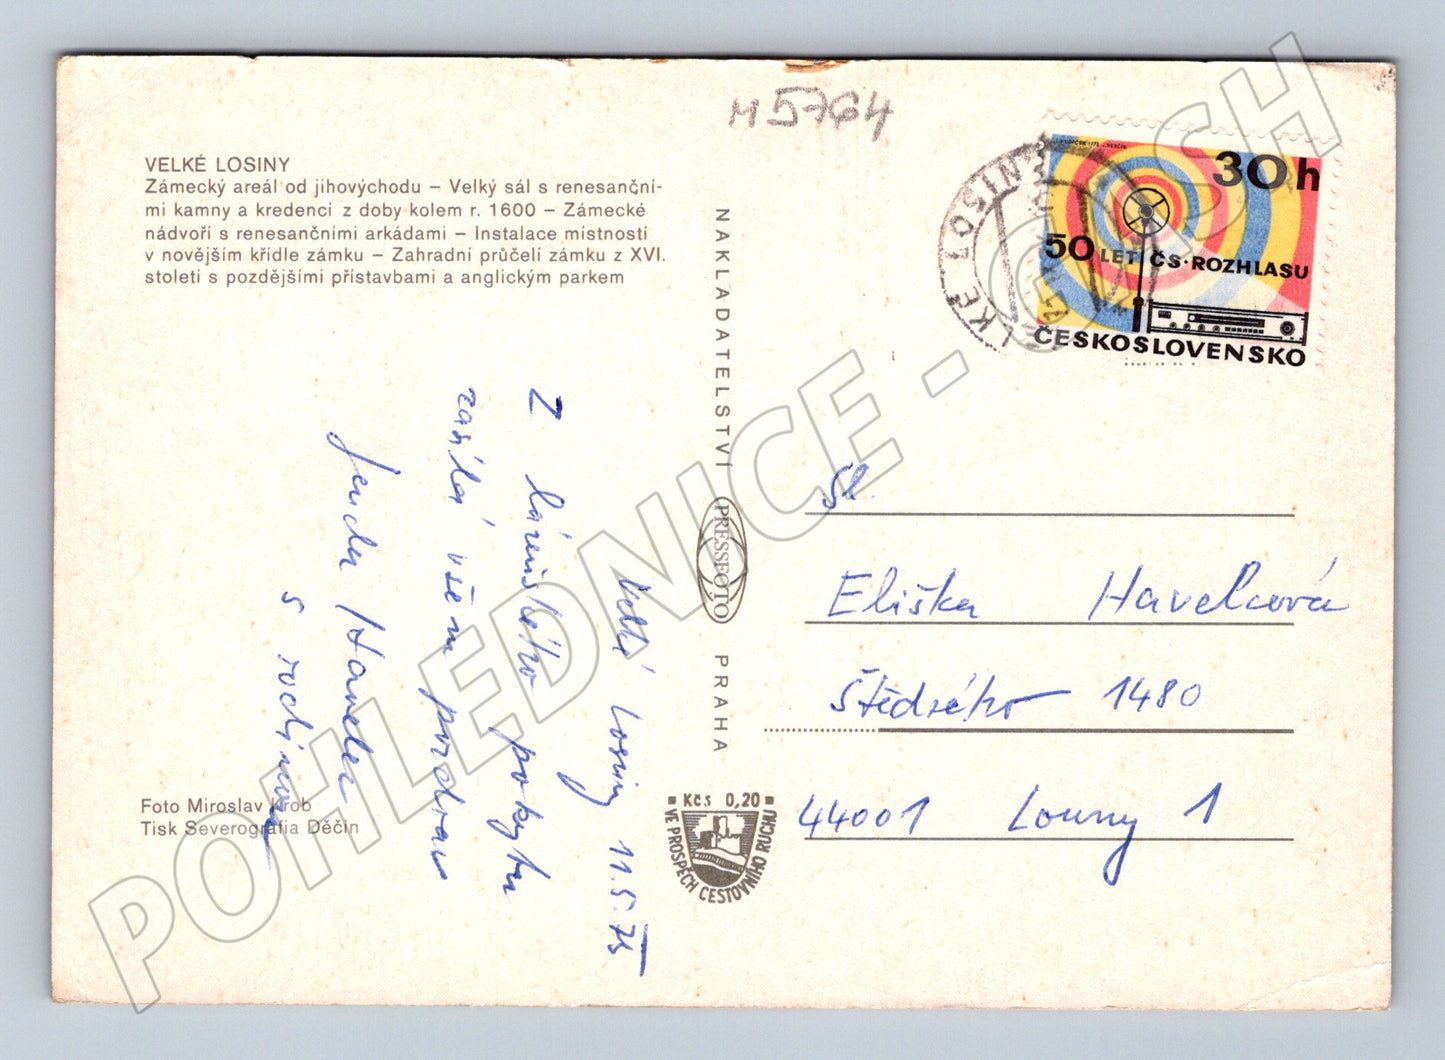 M 5764
VELKÉ LOSINY
Zámecký areál od jihovýchodu – Velký sál s renesanční-
mi kamny a kredencí z doby kolem r. 1600 – Zámecké
nádvoří s renesančními arkádami – Instalace místností
v novějším křídle zámku – Zahradní průčelí zámku z XVI.
století s pozdějšími přístavbami a anglickým parkem
Velké Losiny 11.5.75
Z lázeňského pobytu
zasílá všem pozdrav
Jenda Havelec
s rodinou
Foto Miroslav Krob
Tisk Severografia Děčín
NAKLADATELSTVÍ
PRESSFOTO
PRAHA
Kčs 0,20
VE PROSPĚCH CESTOVNÍHO RUCHU
LKÉ LOSIN
30h
50 LET ČS·ROZHLASU
ČESKOSLOVENSKO
Sl.
Eliška Havelcová
Štědrého 1480
44001 Louny 1
POHLEDNICE - CASH